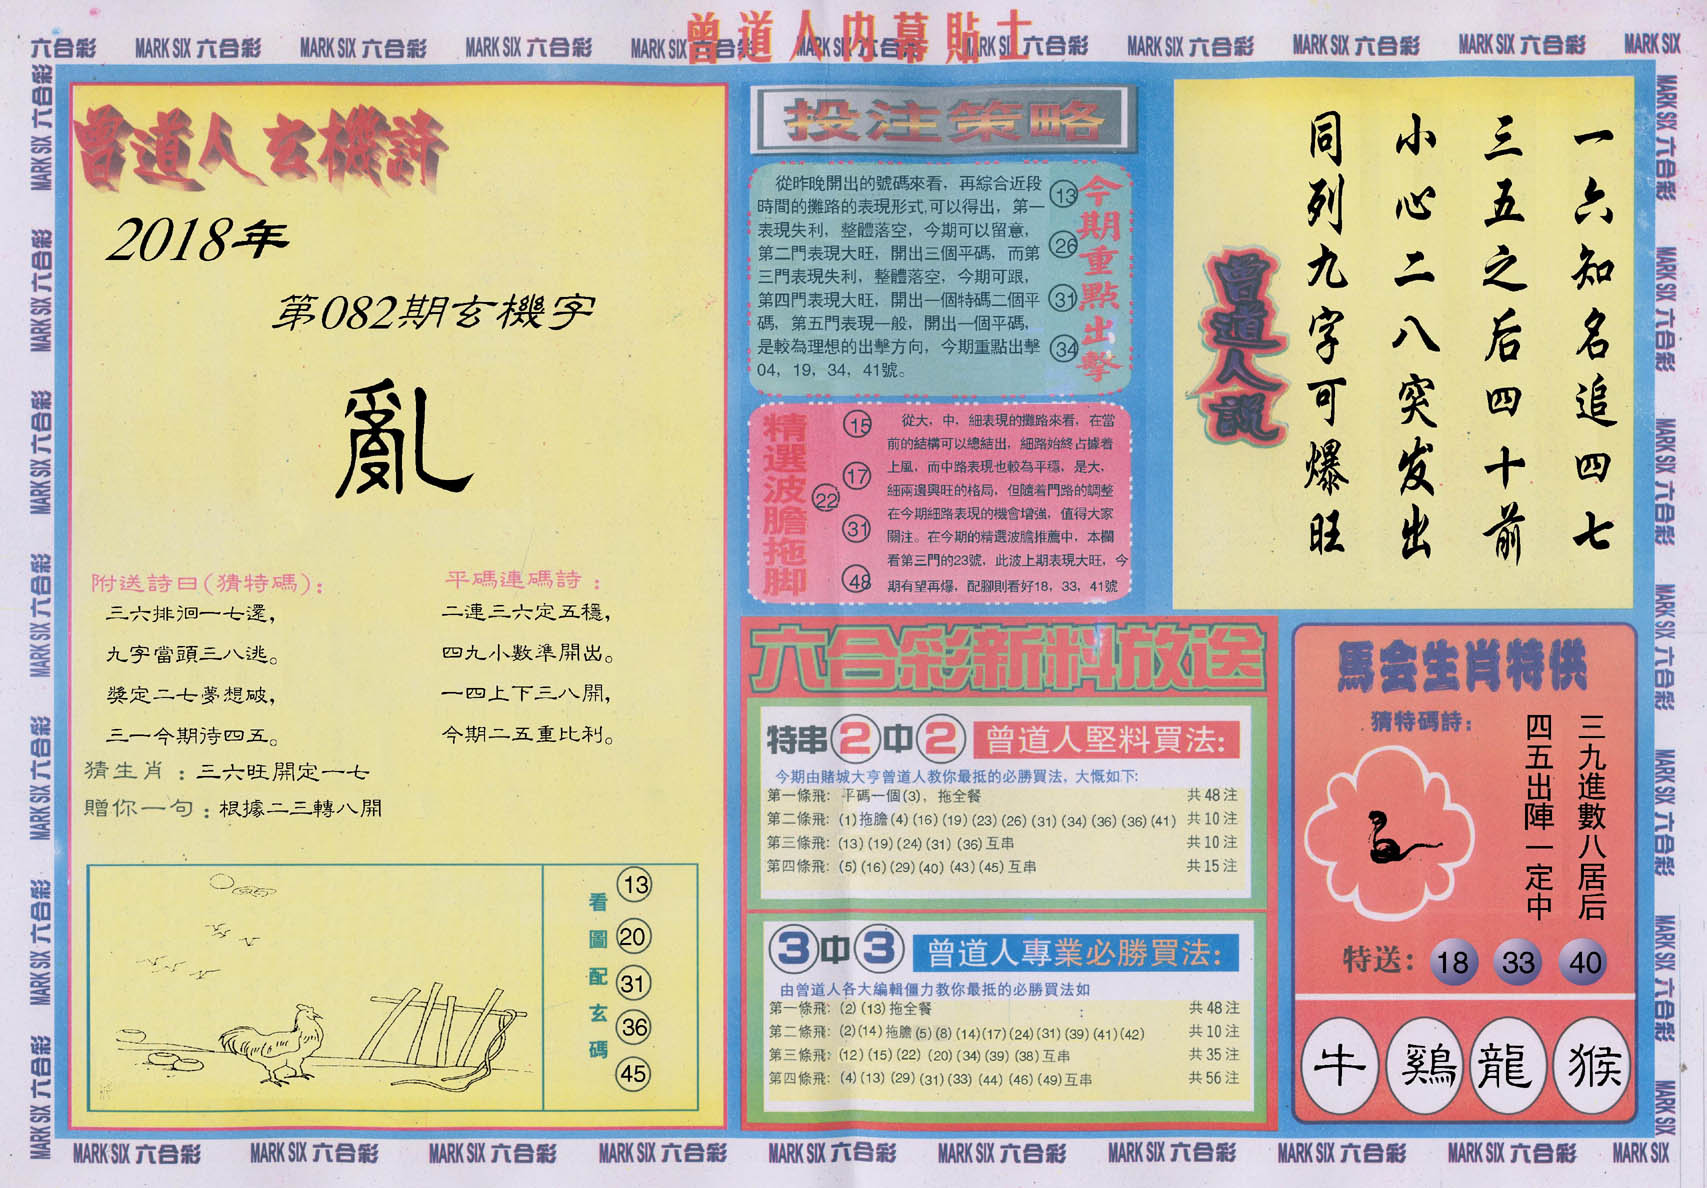 曾道人内幕貼士
六合彩 MARK SIX 六合彩 MARK SIX 六合彩 MARK SIX 六合彩 MARK SIX 六合彩 MARK SIX 六合彩 MARK SIX 六合彩 MARK SIX 六合彩 MARK SIX 六合彩 MARK SIX 六合彩 MARK SIX
曾道人玄機詩
2018年
第082期玄機字
亂
附送詩曰(猜特碼)：
三六排徊一七還，
九字當頭三八逃。
獎定二七夢想破，
三一今期待四五。
平碼連碼詩：
二連三六定五穩，
四九小數準開出。
一四上下三八開，
今期二五重比利。
猜生肖：三六旺開定一七
贈你一句：根據二三轉八開
看圖配玄碼
13
20
31
36
45
投注策略
從昨晚開出的號碼來看，再綜合近段
時間的攤路的表現形式，可以得出，第一
表現失利，整體落空，今期可以留意，
第二門表現大旺，開出三個平碼，而第
三門表現失利，整體落空，今期可跟，
第四門表現大旺，開出一個特碼二個平
碼，第五門表現一般，開出一個平碼，
是較為理想的出擊方向，今期重點出擊
04，19，34，41號。
今期重點出擊
13
26
31
34
精選波膽拖脚
15
17
22
31
48
從大，中，細表現的攤路來看，在當
前的結構可以總結出，細路始終占據着
上風，而中路表現也較為平穩，是大，
細兩邊興旺的格局，但隨着門路的調整
在今期細路表現的機會增強，值得大家
關注。在今期的精選波膽推薦中，本欄
看第三門的23號，此波上期表現大旺，今
期有望再爆，配腳則看好18，33，41號
曾道人説
一六知名追四七
三五之后四十前
小心二八突发出
同列九字可爆旺
六合彩新料放送
特串2中2 曾道人堅料買法：
今期由賭城大亨曾道人教你最抵的必勝買法，大慨如下:
第一條飛: 平碼一個(3)，拖全餐 共48注
第二條飛: (1)拖膽(4)(16)(19)(23)(26)(31)(34)(36)(36)(41) 共10注
第三條飛: (13)(19)(24)(31)(36)互串 共10注
第四條飛: (5)(16)(29)(40)(43)(45)互串 共15注
3中3 曾道人專業必勝買法：
由曾道人各大編輯僵力教你最抵的必勝買法如
第一條飛: (2)(13)拖全餐 共48注
第二條飛: (2)(14)拖膽(5)(8)(14)(17)(24)(31)(39)(41)(42) 共10注
第三條飛: (12)(15)(22)(20)(34)(39)(38)互串 共35注
第四條飛: (4)(13)(29)(31)(33)(44)(46)(49)互串 共56注
馬会生肖特供
猜特碼詩：
三九進數八居后
四五出陣一定中
特送：18 33 40
牛 鷄 龍 猴
MARK SIX 六合彩 MARK SIX 六合彩 MARK SIX 六合彩 MARK SIX 六合彩 MARK SIX 六合彩 MARK SIX 六合彩 MARK SIX 六合彩 MARK SIX 六合彩 MARK SIX 六合彩 MARK SIX